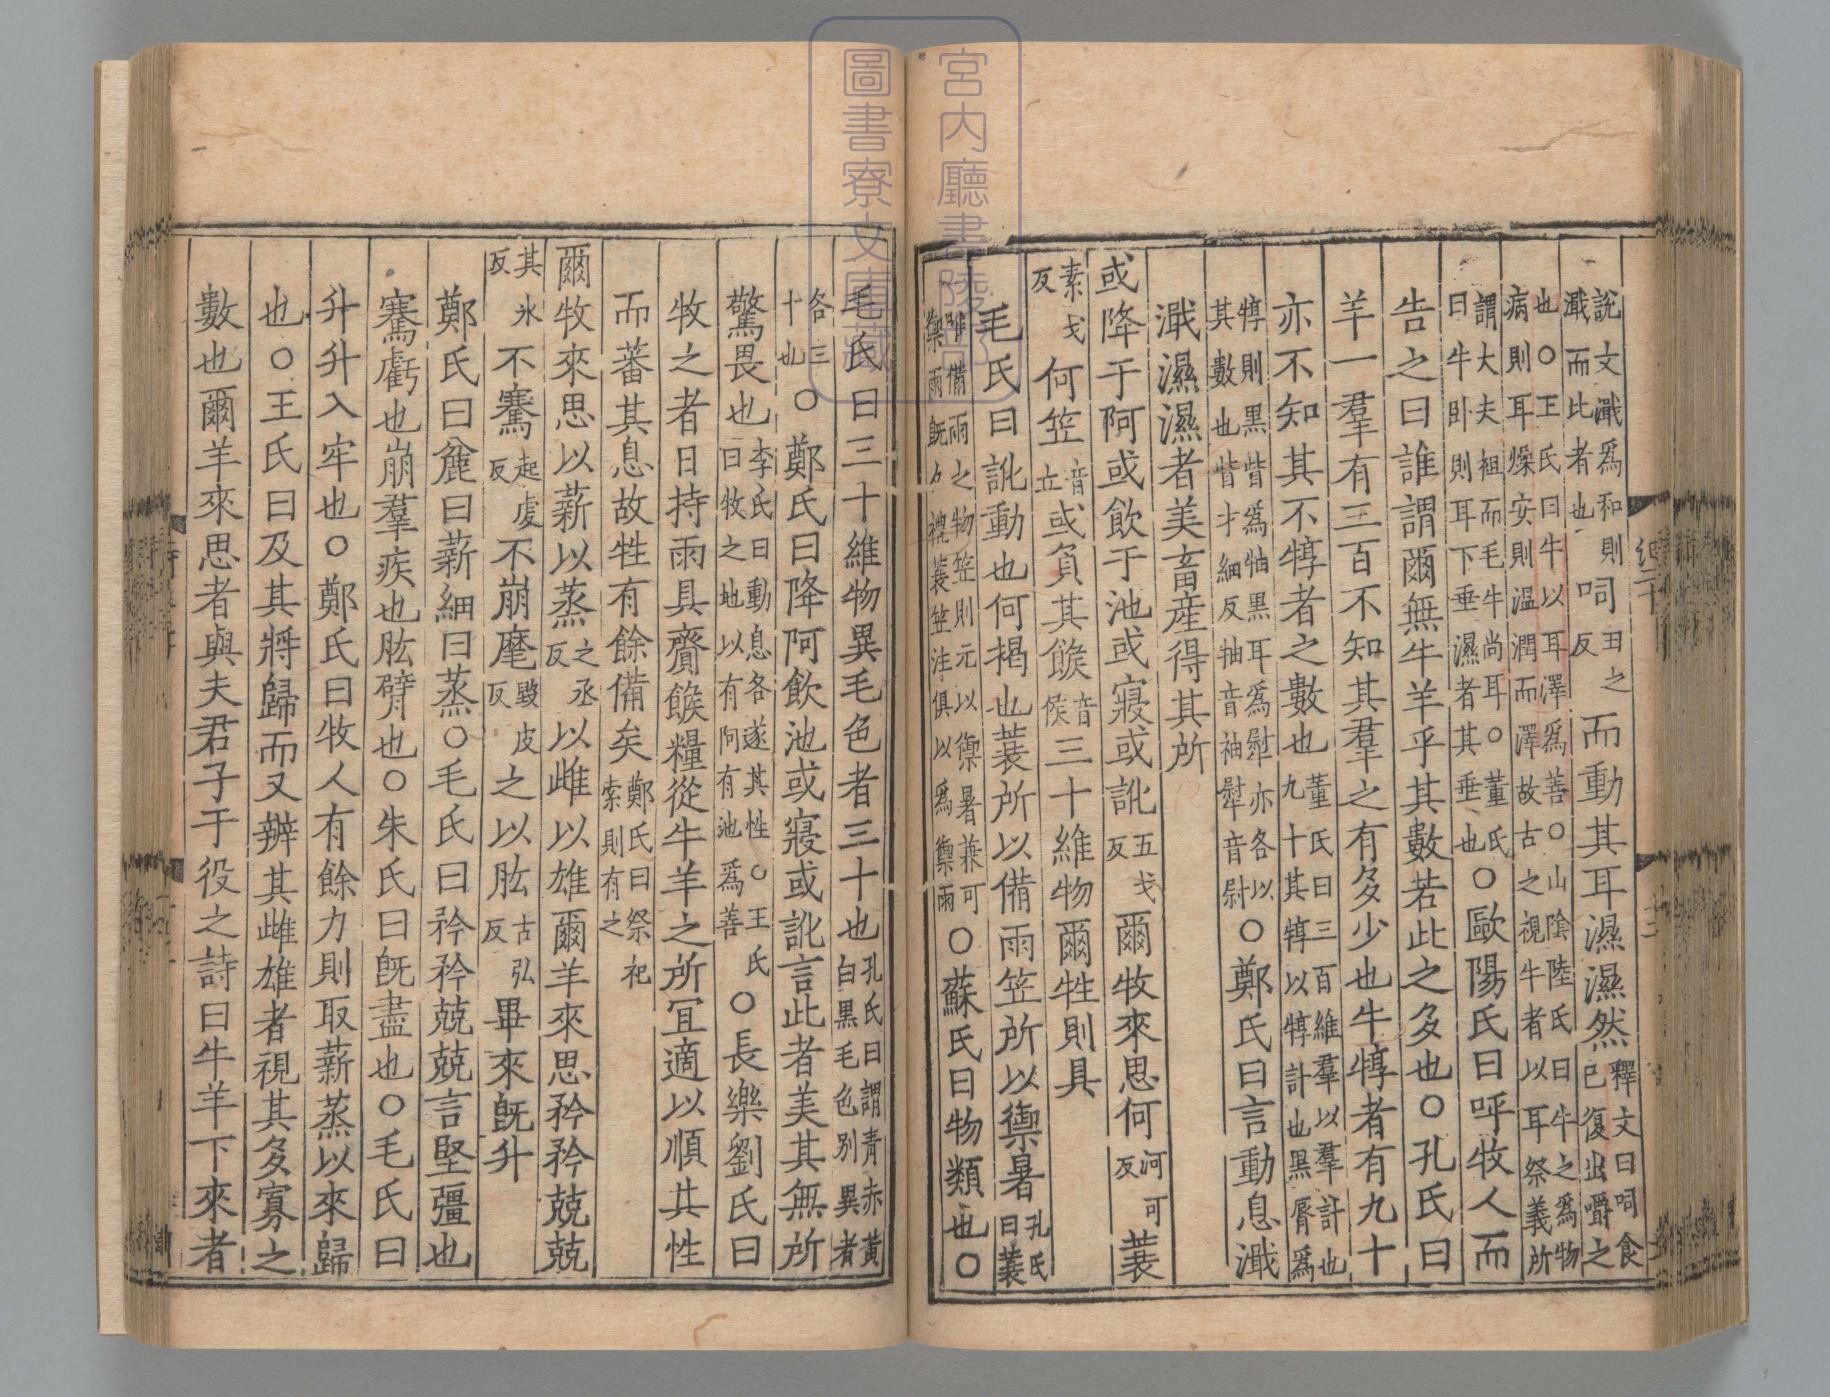 說文濈為和則濈而此者也呞丑之反而動其耳濕濕然釋文曰呞食已復出嚼之
也○王氏曰牛以耳澤為善○山陰陸氏曰牛之為物病則耳燥安則温潤而澤故古之視牛者以耳祭義所
謂大夫袒而毛牛尚耳○董氏曰牛卧則耳下垂濕者其垂也○歐陽氏曰呼牧人而
告之曰誰謂爾無牛羊乎其數若此之多也○孔氏曰
羊一羣有三百不知其羣之有多少也牛犉者有九十
亦不知其不犉者之數也董氏曰三百維羣以羣計也九十其犉以犉計也黑脣為
犉則黑眥為牰黑耳為犚亦各以其數也眥才細反牰音袖犚音尉○鄭氏曰言動息濈
濈濕濕者美畜產得其所
或降于阿或飲于池或寢或訛五戈反爾牧來思何河可反蓑
素戈反何笠音立或負其餱音侯三十維物爾牲則具
毛氏曰訛動也何揭也蓑所以備雨笠所以禦暑孔氏曰蓑
唯備雨之物笠則元以禦暑兼可禦雨旣夕禮蓑笠注俱以為禦雨○蘇氏曰物類也○
毛氏曰三十維物異毛色者三十也孔氏曰謂青赤黃白黑毛色別異者
各三十也○鄭氏曰降阿飲池或寢或訛言此者美其無所
驚畏也李氏曰動息各遂其性○王氏曰牧之地以有阿有池為善○長樂劉氏曰
牧之者日持雨具齎餱糧從牛羊之所冝適以順其性
而蕃其息故牲有餘備矣鄭氏曰祭祀索則有之
爾牧來思以薪以蒸之丞反以雌以雄爾羊來思矜矜兢兢
其氷反不騫起虔反不崩麾毀皮反之以肱古弘反畢來旣升
鄭氏曰麄曰薪細曰蒸○毛氏曰矜矜兢兢言堅彊也
騫虧也崩羣疾也肱臂也○朱氏曰旣盡也○毛氏曰
升升入牢也○鄭氏曰牧人有餘力則取薪蒸以來歸
也○王氏曰及其將歸而又辨其雌雄者視其多寡之
數也爾羊來思者與夫君子于役之詩曰牛羊下來者
宮内廳書陵部
圖書寮文庫藏